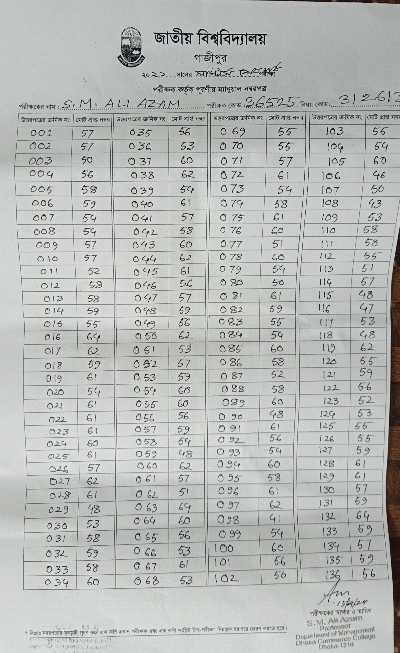 জাতীয় বিশ্ববিদ্যালয়
গাজীপুর
পরীক্ষক কর্তৃক পূরণীয় ম্যানুয়াল নম্বরপত্র
পরীক্ষকের নাম: S.M. ALI AZAM পরীক্ষক কোড: 26525 বিষয় কোড:
উত্তরপত্রের ক্রমিক নং মোট প্রাপ্ত নম্বর উত্তরপত্রের ক্রমিক নং মোট প্রাপ্ত নম্বর উত্তরপত্রের ক্রমিক নং মোট প্রাপ্ত নম্বর উত্তরপত্রের ক্রমিক নং মোট প্রাপ্ত নম্বর
001 57 035 56 069 55 103 55
002 51 036 53 070 55 104 54
003 50 037 60 071 57 105 60
004 56 038 62 072 61 106 46
005 58 039 54 073 54 107 50
006 59 040 61 074 58 108 43
007 54 041 57 075 61 109 53
008 54 042 58 076 60 110 58
009 57 043 60 077 51 111 58
010 57 044 62 078 60 112 55
011 52 045 61 079 54 113 51
012 58 046 56 080 50 114 57
013 58 047 57 081 61 115 48
014 59 048 59 082 59 116 47
015 55 049 56 083 55 117 53
016 64 050 62 084 54 118 48
017 62 051 53 085 60 119 62
018 59 052 57 086 58 120 55
019 61 053 59 087 52 121 54
020 54 054 60 088 58 122 56
021 61 055 60 089 60 123 52
022 61 056 56 090 48 124 53
023 61 057 59 091 61 125 55
024 60 058 54 092 56 126 55
025 61 059 48 093 54 127 59
026 57 060 62 094 60 128 61
027 62 061 57 095 58 129 61
028 61 062 51 096 61 130 57
029 48 063 64 097 62 131 59
030 53 064 60 098 41 132 64
031 58 065 56 099 54 133 59
032 59 066 53 100 60 134 57
033 58 067 61 101 56 135 59
034 60 068 53 102 50 136 56
পরীক্ষকের স্বাক্ষর ও তারিখ
S. M. Ali Azam
Professor
Department of Management
Dhaka Commerce College
Dhaka-1216